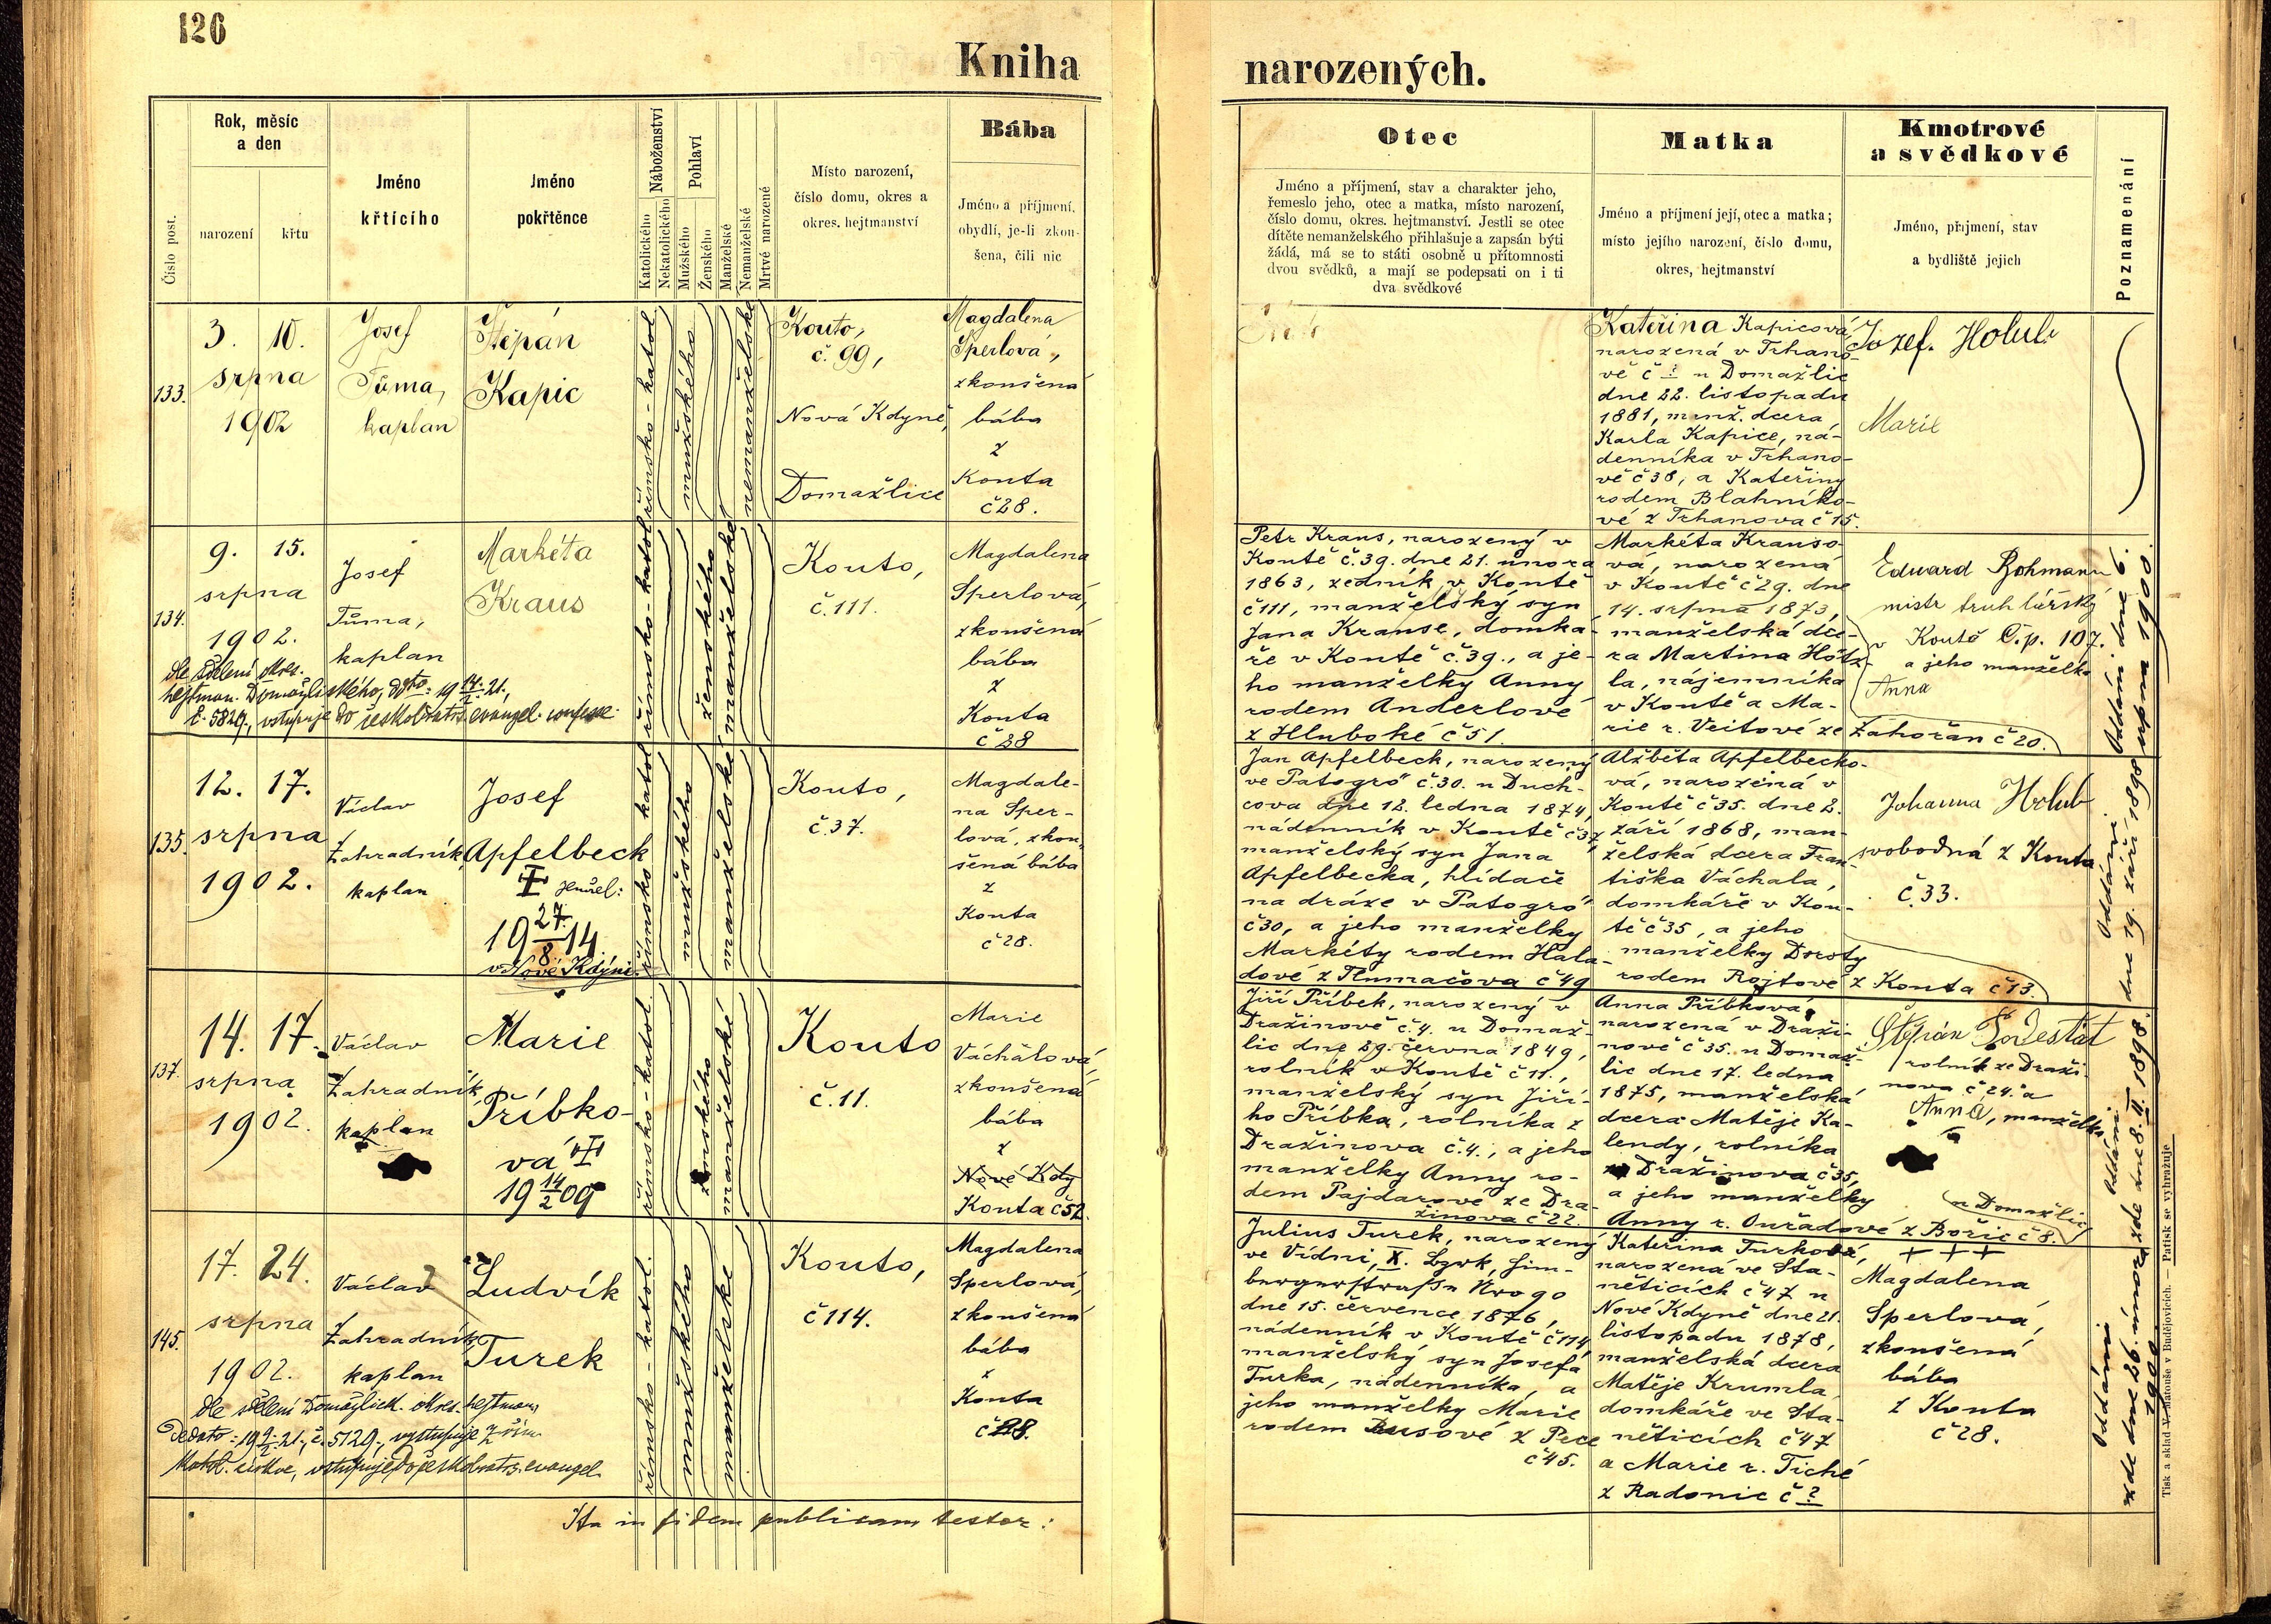 126
Kniha
narozených.
Číslo post.
Rok, měsíc
a den
narození
křtu
Jméno
křtícího
Jméno
pokřtěnce
Náboženství
Katolického
Nekatolického
Pohlaví
Mužského
Ženského
Manželské
Nemanželské
Mrtvě narozené
Místo narození,
číslo domu, okres a
okres. hejtmanství
Bába
Jméno a příjmení,
obydlí, je-li zkou-
šena, čili nic
Otec
Jméno a příjmení, stav a charakter jeho,
řemeslo jeho, otec a matka, místo narození,
číslo domu, okres. hejtmanství. Jestli se otec
dítěte nemanželského přihlašuje a zapsán býti
žádá, má se to státi osobně u přítomnosti
dvou svědků, a mají se podepsati on i ti
dva svědkové
Matka
Jméno a příjmení její, otec a matka;
místo jejího narození, číslo domu,
okres, hejtmanství
Kmotrové
a svědkové
Jméno, příjmení, stav
a bydliště jejich
Poznamenání
133.
3. 10.
srpna
1902
Josef
Tůma,
kaplan
Štěpán
Kapic
římsko-katol
mužského
nemanželské
Kouto,
č. 99,
Nová Kdyně,
Domažlice
Magdalena
Sperlová,
zkoušená
bába
z
Kouta
č 28.
Kateřina Kapicová
narozená v Trhano-
vě č ? u Domažlic
dne 22. listopadu
1881, manž. dcera
Karla Kapice, ná-
denníka v Trhano-
vě č 38, a Kateřiny
rodem Blahníko-
vé z Trhanova č 15.
Jozef. Holub
Marie
134.
9. 15.
srpna
1902.
Josef
Tůma,
kaplan
Markéta
Kraus
dle sdělení okres.
hejtman. Domažlického, dto: 19 14/2 21.,
č. 5829, vstupuje do českobratrs. evangel. confesse.
římsko-katol
ženského
manželské
Kouto,
č. 111.
Magdalena
Sperlová,
zkoušená
bába
z
Kouta
č 28
Petr Kraus, narozený v
Koutě č. 39. dne 21. února
1863, zedník v Koutě
č 111, manželský syn
Jana Krause, domká-
ře v Koutě č. 39., a je-
ho manželky Anny
rodem Anderlové
z Hluboké č 51.
Markéta Krauso-
vá, narozená
v Koutě č 29. dne
14. srpna 1873,
manželská dce-
ra Martina Hötz-
la, nájemníka
v Koutě a Ma-
rie r. Veitové ze Zahořan č 20.
Eduard Rohmann
mistr truhlářský
v Koutě č.p. 107.
a jeho manželka
Anna
Oddáni dne 6.
srpna 1900.
135.
12. 17.
srpna
1902.
Václav
Zahradník,
kaplan
Josef
Apfelbeck
19 27/8 14.
v Nové Kdýni.
římsko katol
mužského
manželské
Kouto,
č. 37.
Magdale-
na Sper-
lová, zkou-
šená bába
z
Kouta
č 28.
Jan Apfelbeck, narozený
ve Patogró č. 30. u Duch-
cova dne 12. ledna 1874,
nádenník v Koutě č 37,
manželský syn Jana
Apfelbecka, hlídače
na dráze v Patogró
č 30, a jeho manželky
Markéty rodem Hala-
dové z Tlumačova č 49
Alžběta Apfelbecko-
vá, narozená v
Koutě č 35. dne 2.
září 1868, man-
želská dcera Fran-
tiška Váchala,
domkáře v Kou-
tě č 35, a jeho
manželky Doroty
rodem Rojtové z Kouta č 13.
Johanna Holub
svobodná z Kouta
č. 33.
Oddáni
dne 19. září 1898
137.
14. 17.
srpna
1902.
Václav
Zahradník,
kaplan
Marie
Příbko-
vá
19 14/2 09
římsko-katol.
ženského
manželské
Kouto
č. 11.
Marie
Váchalová,
zkoušená
bába
z
Nové Kdy
Kouta č 52.
Jiří Příbek, narozený v
Dražinově č. 4. u Domaž-
lic dne 29. června 1849,
rolník v Koutě č 11.,
manželský syn Jiří-
ho Příbka, rolníka z
Dražinova č. 4., a jeho
manželky Anny ro-
dem Pajdarové ze Dra-
žinova č 22.
Anna Příbková,
narozená v Draži-
nově č 35. u Domaž-
lic dne 17. ledna
1875, manželská
dcera Matěje Ka-
lendy, rolníka
z Dražinova č 35,
a jeho manželky
Anny r. Ouřadové z Bořic č 8.
u Domažlic
Štěpán Podestát
rolník ze Draži-
nova č 24. a
Anna, manželka
Oddáni
zde dne 8. II. 1898.
145.
17. 24.
srpna
1902.
Václav
Zahradník,
kaplan
Ludvík
Turek
dle sdělení Domažlick. okres. hejtman.
Dedato: 19 9/2 21., č. 5129., vystupuje z řím
katol. církve, vstupuje do českobratrs. evangel.
římsko-katol.
mužského
manželské
Kouto,
č 114.
Magdalena
Sperlová,
zkoušená
bába
z
Kouta
č 28.
Julius Turek, narozený
ve Vídni, X. Bzrk,
dne 15. července 1876,
nádenník v Koutě č 114
manželský syn Josefa
Turka, nádenníka, a
jeho manželky Marie
rodem Rusové z Pece
č 45.
Kateřina Turková,
narozená ve Sta-
něticích č 47 u
Nové Kdyně dne 21.
listopadu 1878,
manželská dcera
Matěje Krumla,
domkáře ve Sta-
něticích č 47
a Marie r. Tiché
z Radonic č ?
+ + +
Magdalena
Sperlová,
zkoušená
bába
z Kouta
č 28.
Oddáni
zde dne 26. února
1900.
Ita in fidem publicam testor:
Tisk a sklad V. Matouše v Budějovicích. — Patisk se vyhražuje